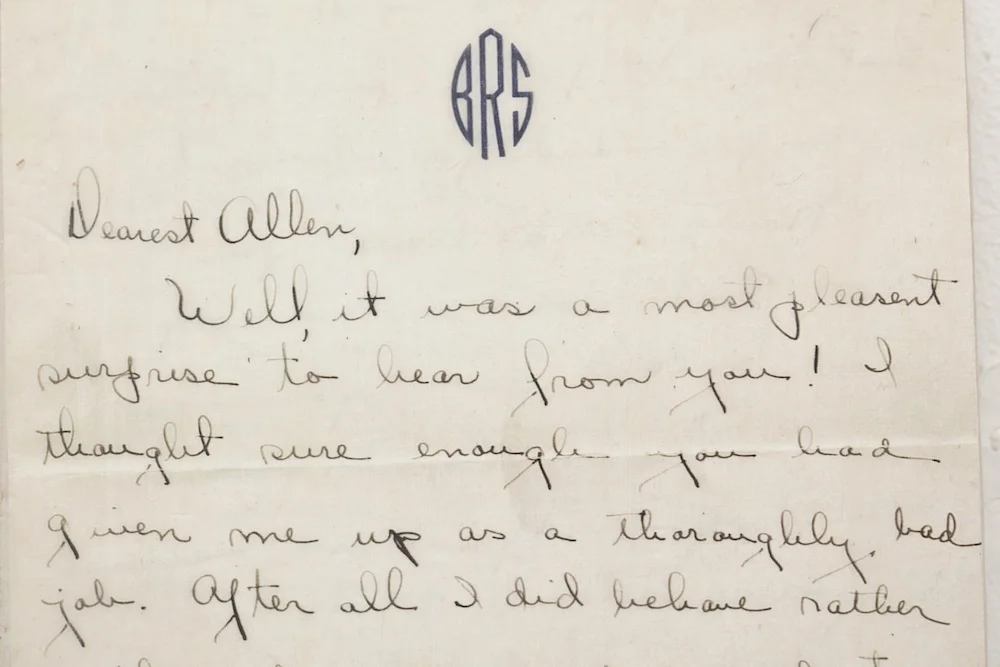 BRS
Dearest Allen,
Well, it was a most pleasent
surprise to hear from you! I
thought sure enough you had
given me up as a thoroughly bad
job. After all I did behave rather